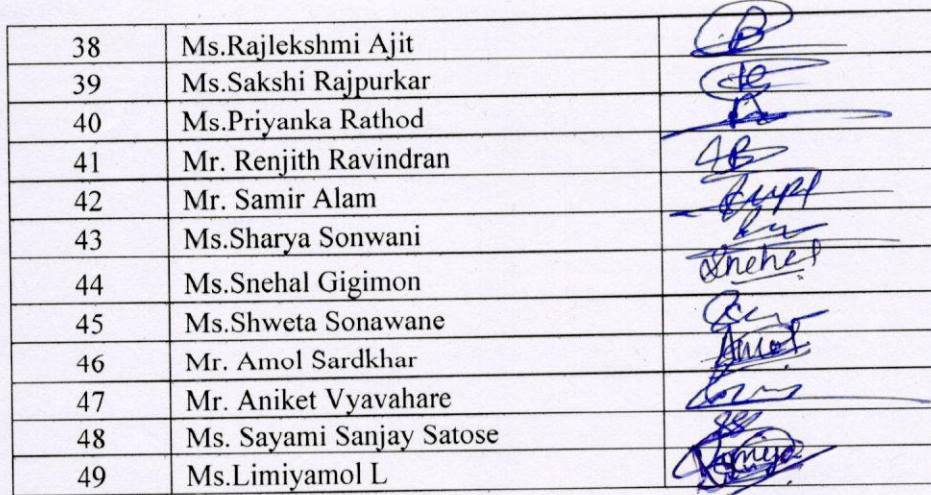 38 Ms.Rajlekshmi Ajit
39 Ms.Sakshi Rajpurkar
40 Ms.Priyanka Rathod
41 Mr. Renjith Ravindran
42 Mr. Samir Alam
43 Ms.Sharya Sonwani
44 Ms.Snehal Gigimon Snehal
45 Ms.Shweta Sonawane
46 Mr. Amol Sardkhar Amol
47 Mr. Aniket Vyavahare
48 Ms. Sayami Sanjay Satose
49 Ms.Limiyamol L